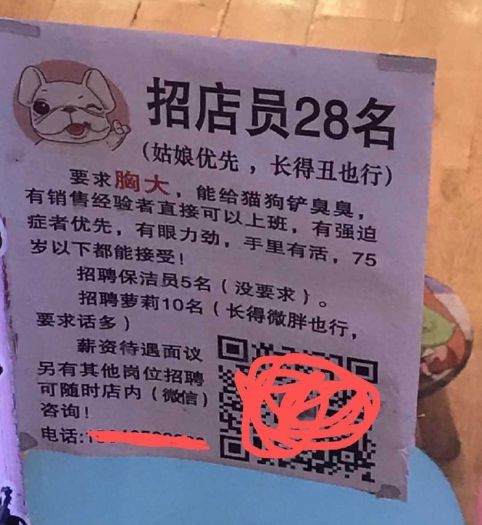 招店员28名
(姑娘优先，长得丑也行)
要求胸大，能给猫狗铲臭臭，
有销售经验者直接可以上班，有强迫
症者优先，有眼力劲，手里有活，75
岁以下都能接受！
招聘保洁员5名（没要求）。
招聘萝莉10名（长得微胖也行，
要求话多）
薪资待遇面议
另有其他岗位招聘
可随时店内（微信）
咨询！
电话: